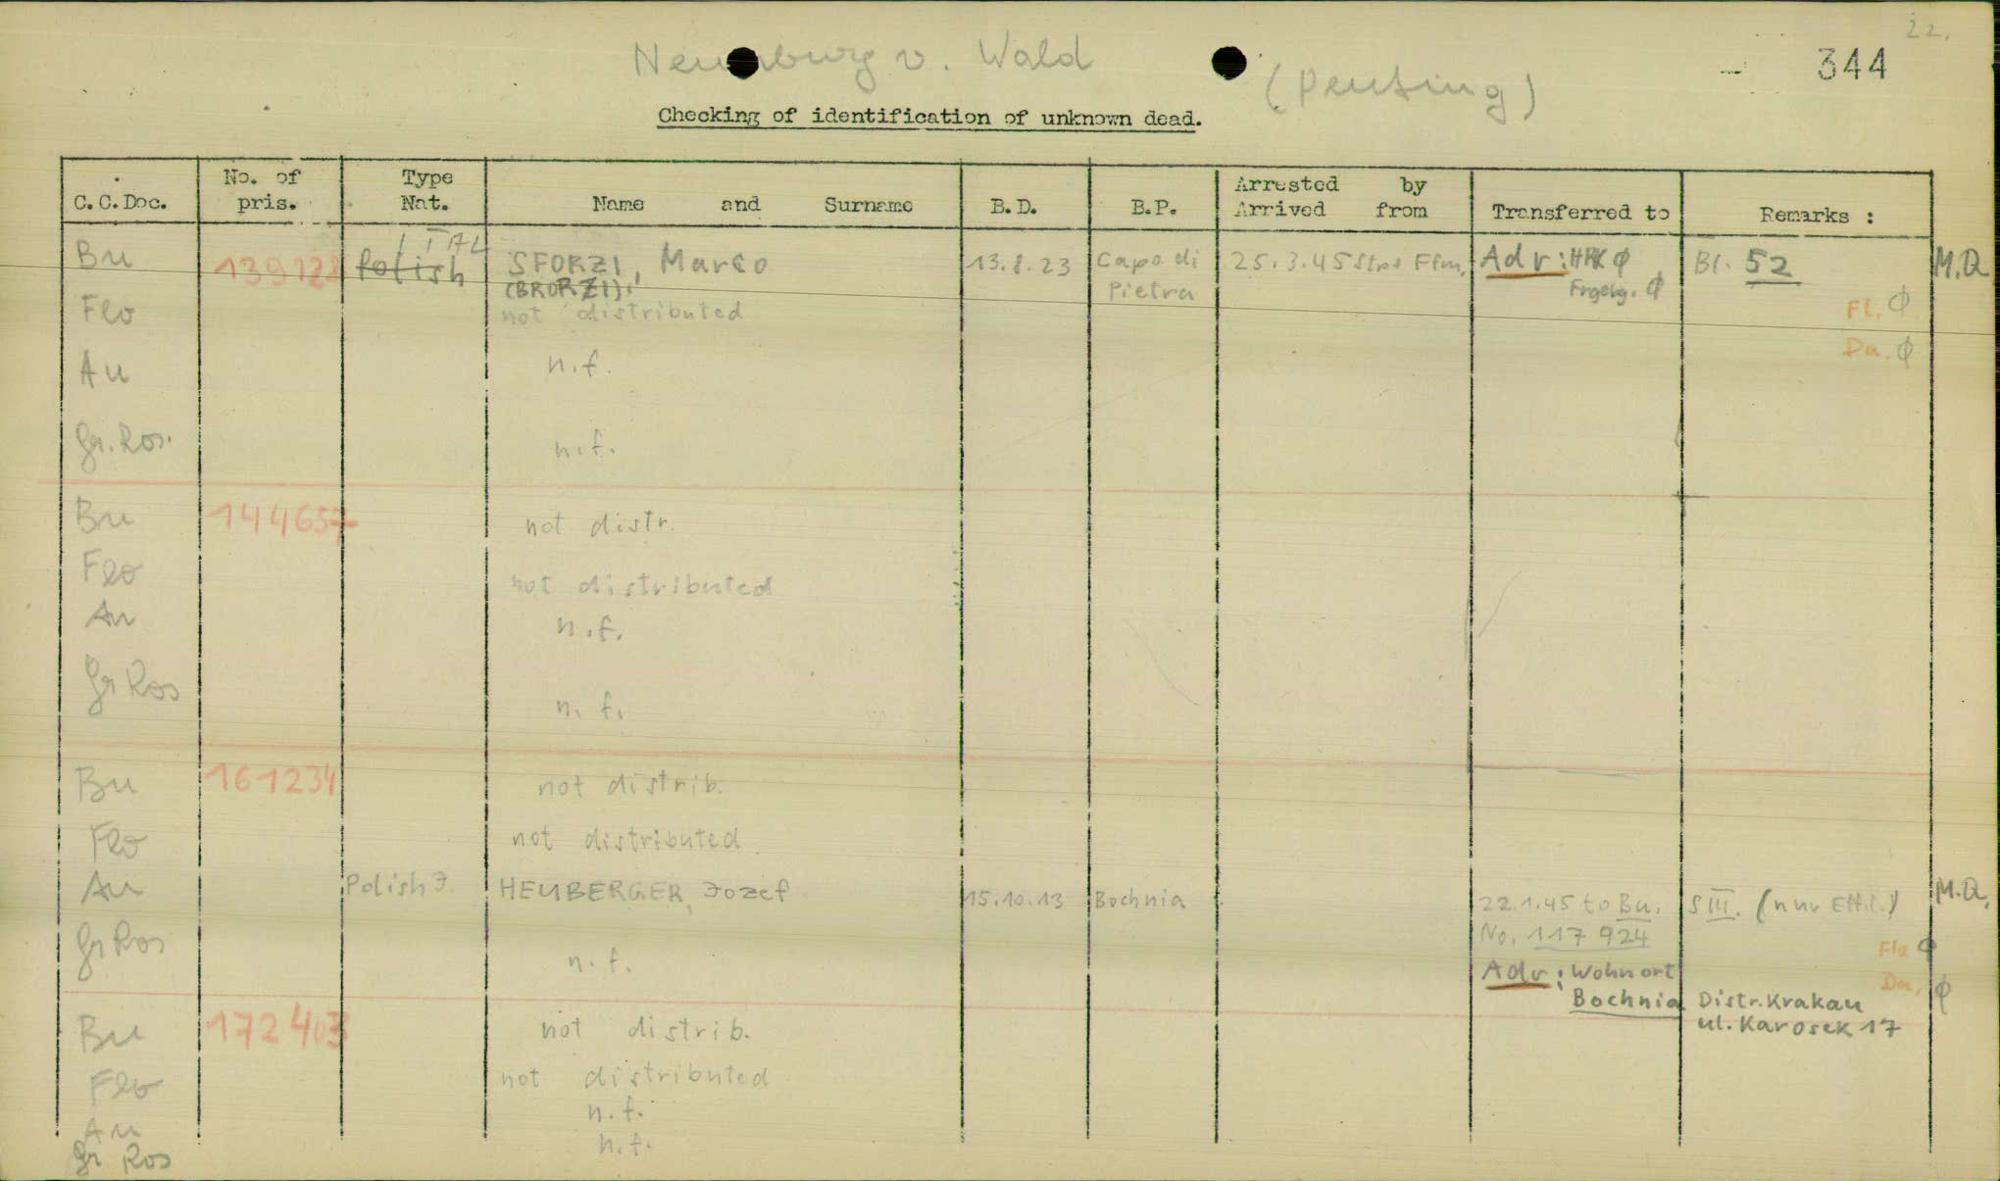 22.
Neunburg v. Wald
344
(Penting)
Checking of identification of unknown dead.
C.C.Doc. No. of pris. Type Nat. Name and Surname B.D. B.P. Arrested by Arrived from Transferred to Remarks :
ITAL
Bu 139128 Polish SFORZI, Marco 13.8.23 Capo di 25.3.45 Ffm. Adr: Ø Bl. 52 M.Q
(BRORZI) Pietra Ø
Flo not distributed Fl. Ø
Au n.f. Da. Ø
Gr. Ros. n.f.
Bu 144657 not distr.
Flo not distributed
Au n.f.
Gr Ros n. f.
Bu 161234 not distrib.
Flo not distributed
Au Polish J. HEUBERGER, Jozef 15.10.13 Bochnia 22.1.45 to Bu. S III. (nur Eff.) M.Q.
No. 117 924
Gr Ros n. f. Flo Ø
Adr: Wohnort Da. Ø
Bochnia Distr. Krakau
Bu 172403 not distrib. ul. Karosek 17
Flo not distributed
Au n.f.
Gr Ros n.f.